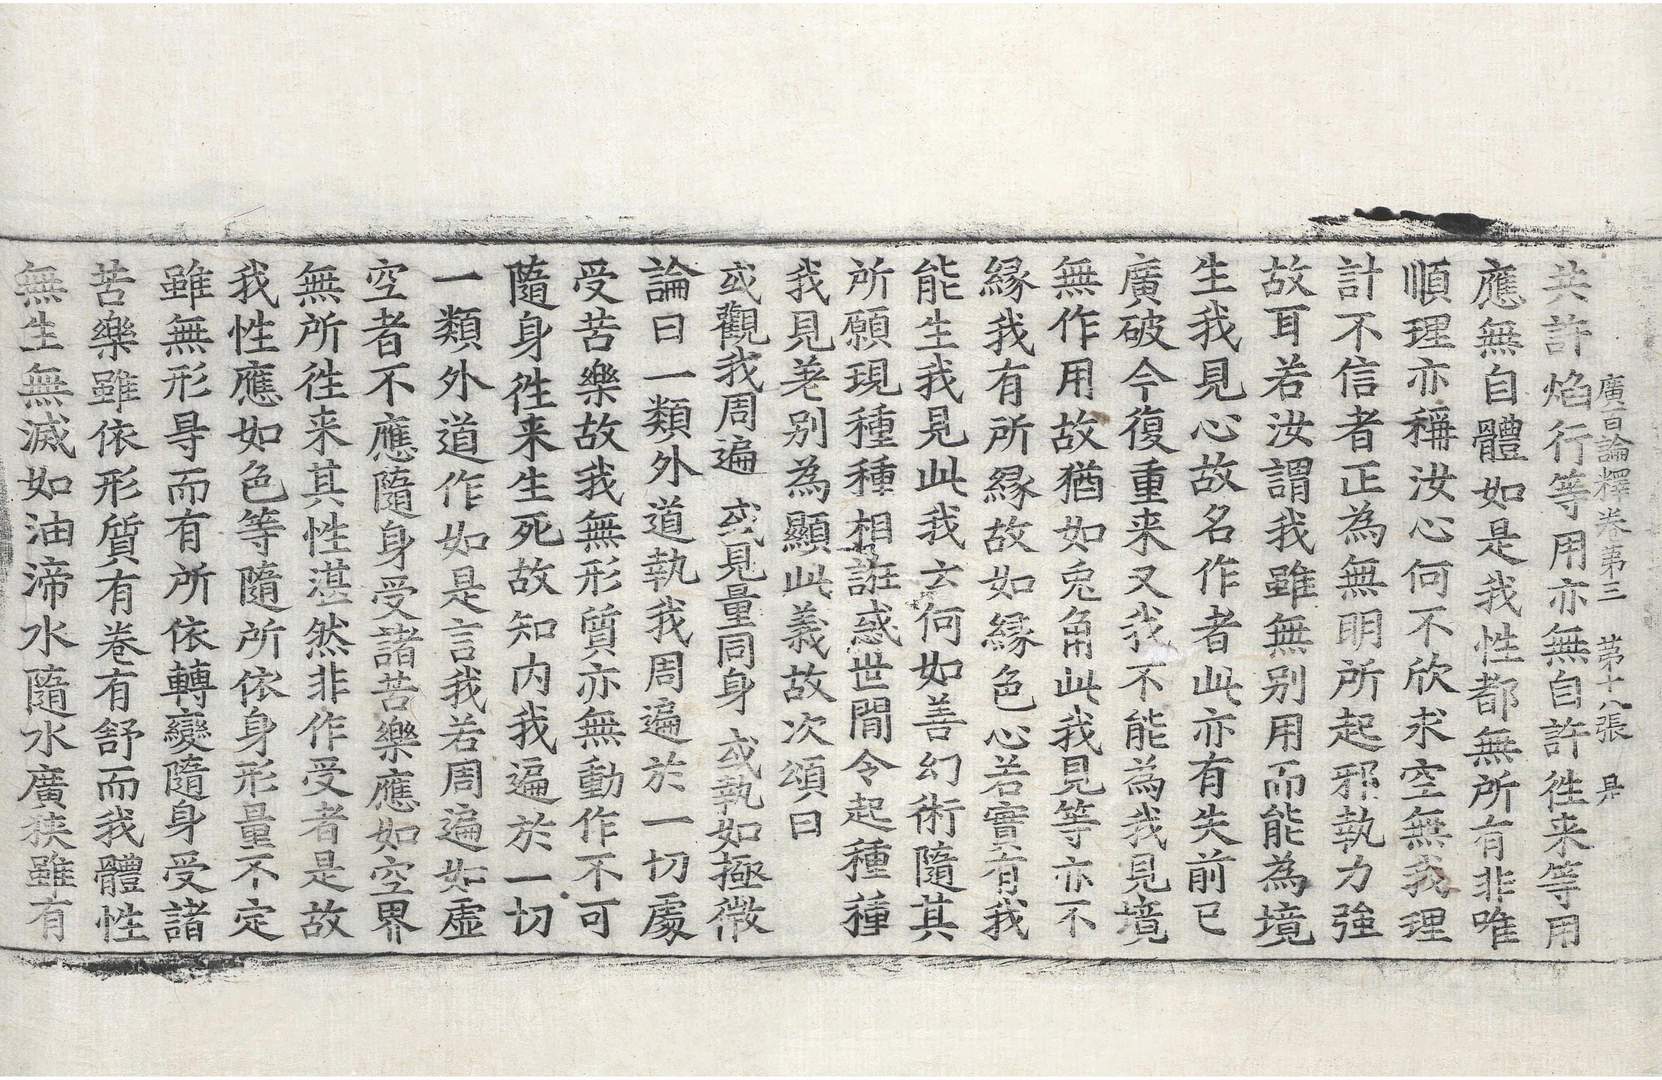 廣百論釋卷第三　第十八張　是
共許焰行等用亦無自許徃来等用
應無自體如是我性都無所有非唯
順理亦稱汝心何不欣求空無我理
計不信者正為無明所起邪執力強
故耳若汝謂我雖無别用而能為境
生我見心故名作者此亦有失前已
廣破今復重来又我不能為我見境
無作用故猶如兎角此我見等亦不
縁我有所縁故如縁色心若實有我
能生我見此我云何如善幻術隨其
所願現種種相誑惑世間令起種種
我見差别為顯此義故次頌曰
或觀我周遍　或見量同身　或執如極微
論曰一類外道執我周遍於一切處
受苦樂故我無形質亦無動作不可
隨身徃来生死故知内我遍於一切
一類外道作如是言我若周遍如虚
空者不應隨身受諸苦樂應如空界
無所徃来其性湛然非作受者是故
我性應如色等隨所依身形量不定
雖無形㝵而有所依轉變隨身受諸
苦樂雖依形質有卷有舒而我體性
無生無滅如油渧水隨水廣狹雖有